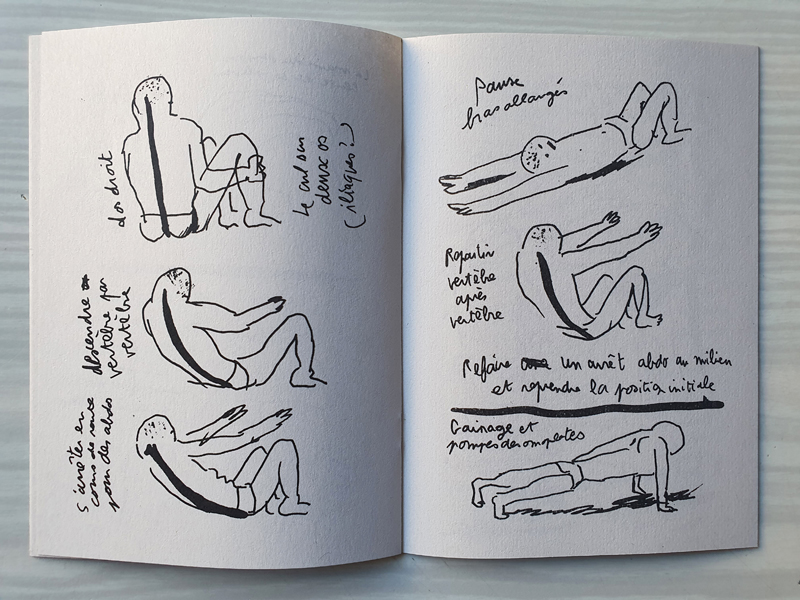 dos droit
le cul sur
deux os
(iliaques?)
descendre
vertèbre par
vertèbre
s'arrêter en
cours de route
pour des abdos
Pause
bras allongés
Repartir
vertèbre
après
vertèbre
Refaire un arrêt abdo au milieu
et reprendre la position initiale
Gainage et
pompes des omoplates